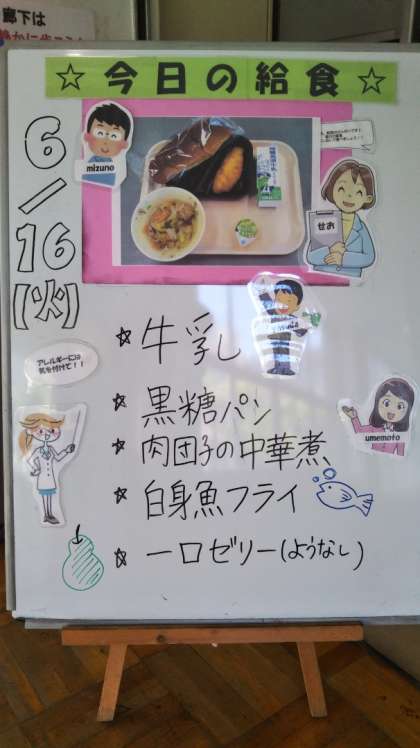 廊下は
☆今日の給食☆
6/16(火)
mizuno
せお
アレルギーには
気を付けて！！
umemoto
☆牛乳
☆黒糖パン
☆肉団子の中華煮
☆白身魚フライ
☆一口ゼリー(ようなし)